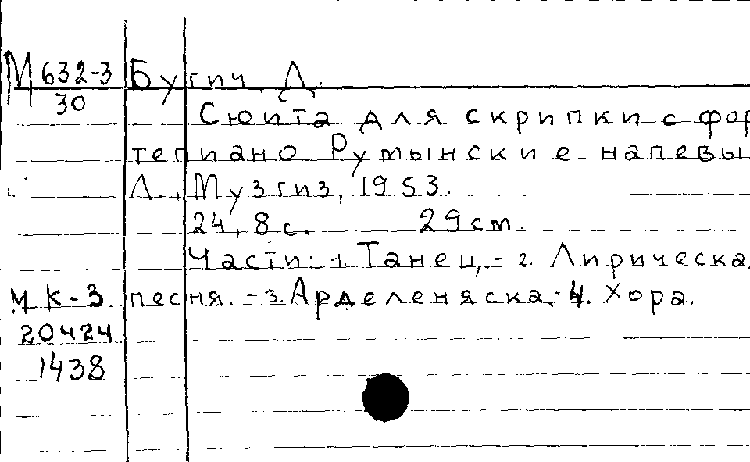 М 632-3 Бугич, Д.
30
Сюита для скрипки с фор
тепиано Румынские напевы
Л., Музгиз, 1953.
24, 8 с. 29 см.
Части: 1. Танец, - 2. Лирическа
ч к - 3. песня. - 3. Арделеняска, - 4. Хора.
20424
1438